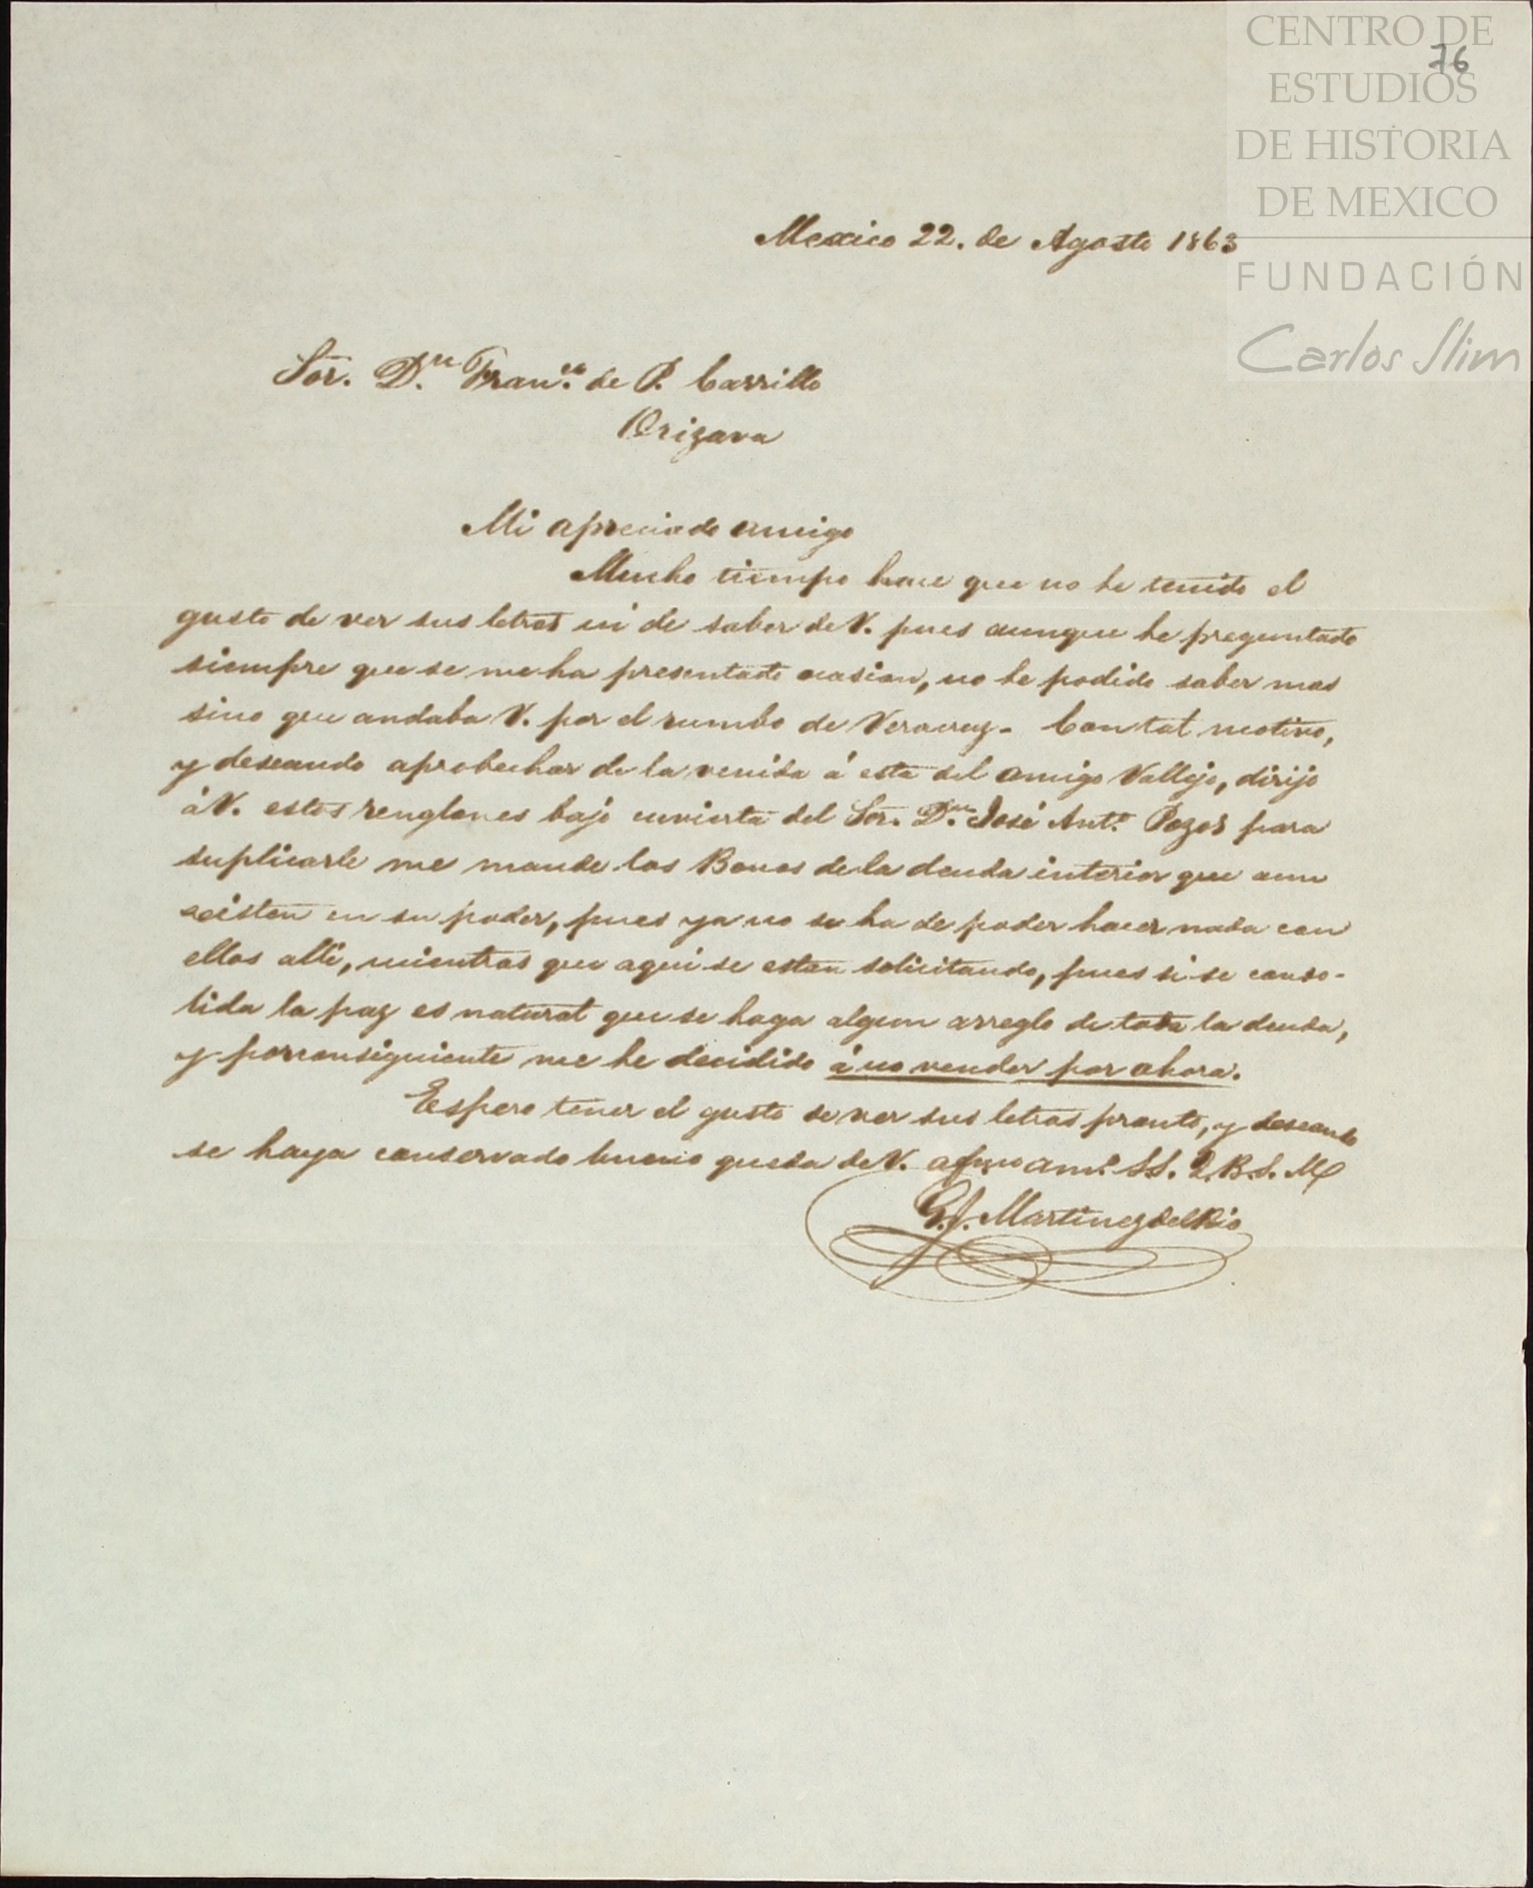 CENTRO DE
ESTUDIOS
DE HISTORIA
DE MEXICO
FUNDACIÓN
Carlos Slim
76
Mexico 22. de Agosto 1863
Sor. D.n Fran.co de P. Carrillo
Orizava
Mi apreciado amigo
Mucho tiempo hace que no he tenido el
gusto de ver sus letras ni de saber de V. pues aunque he preguntado
siempre que se me ha presentado ocasion, no he podido saber mas
sino que andaba V. por el rumbo de Veracruz. Con tal motivo,
y deseando aprobechar de la venida á esta del amigo Vallejo, dirijo
á V. estos renglones bajo cuvierta del Sor. D.n José Ant.o Pozos para
suplicarle me mande los Bonos de la deuda interior que aun
existen en su poder, pues ya no se ha de poder hacer nada con
ellos alli, mientras que aqui se estan solicitando, pues si se conso-
lida la paz es natural que se haga algun arreglo de toda la deuda,
y por consiguiente me he decidido á no vender por ahora.
Espero tener el gusto de ver sus letras pronto, y deseando
se haya conservado bueno queda de V. afmo am.o S.S. Q.B.S.M
G.J. Martinez del Rio